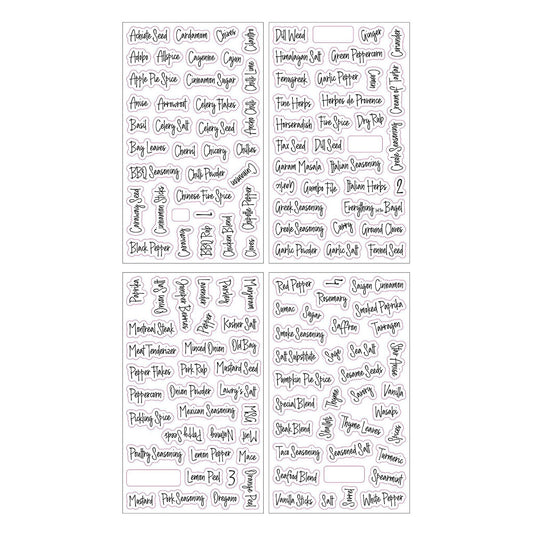 Achiote Seed Cardamom Chives Cilantro
Adobo Allspice Cayenne Cajun
Apple Pie Spice Cinnamon Sugar Chili Lime
Anise Arrowroot Celery Flakes
Basil Celery Salt Celery Seed Ancho Chili
Bay Leaves Chervil Chicory Chillies
BBQ Seasoning Chili Powder Cinnamon
Caraway Seed Cinnamon Sticks Chinese Five Spice
1 Chipotle Pepper
Black Pepper Caraway BBQ Rub Chicken Blend Cloves
Dill Weed Ginger Coriander
Himalayan Salt Green Peppercorn
Fenugreek Garlic Pepper Cumin Cream of Tartar
Fine Herbs Herbes de Provence
Horseradish Five Spice Dry Rub
Flax Seed Dill Seed Creole Seasoning
Garam Masala Italian Seasoning
Garlic Gumbo File Italian Herbs 2
Greek Seasoning Everything but the Bagel
Creole Seasoning Curry Ground Cloves
Garlic Powder Garlic Salt Fennel Seed
Paprika Onion Salt Smoked Paprika Lavender Parsley Marjoram
Montreal Steak Pepper Kosher Salt
Meat Tenderizer Minced Onion Old Bay
Pepper Flakes Pork Rub Mustard Seed
Peppercorn Onion Powder Lawry's Salt
Pickling Spice Mexican Seasoning MSG
Poppy Seeds Nutmeg Mint
Poultry Seasoning Lemon Pepper Mace
Lemon Peel 3 Orange Peel
Mustard Pork Seasoning Oregano
Red Pepper 4 Saigon Cinnamon
Sumac Sugar Rosemary Smoked Paprika
Smoke Seasoning Saffron Tarragon
Salt Substitute Sage Sea Salt Star Anise
Pumpkin Pie Spice Sesame Seeds
Special Blend Thyme Savory Vanilla
Steak Blend Shallots Thyme Leaves Wasabi
Taco Seasoning Seasoned Salt Spices
Turmeric
Seafood Blend Spearmint
Vanilla Sticks Salt Sorrel White Pepper